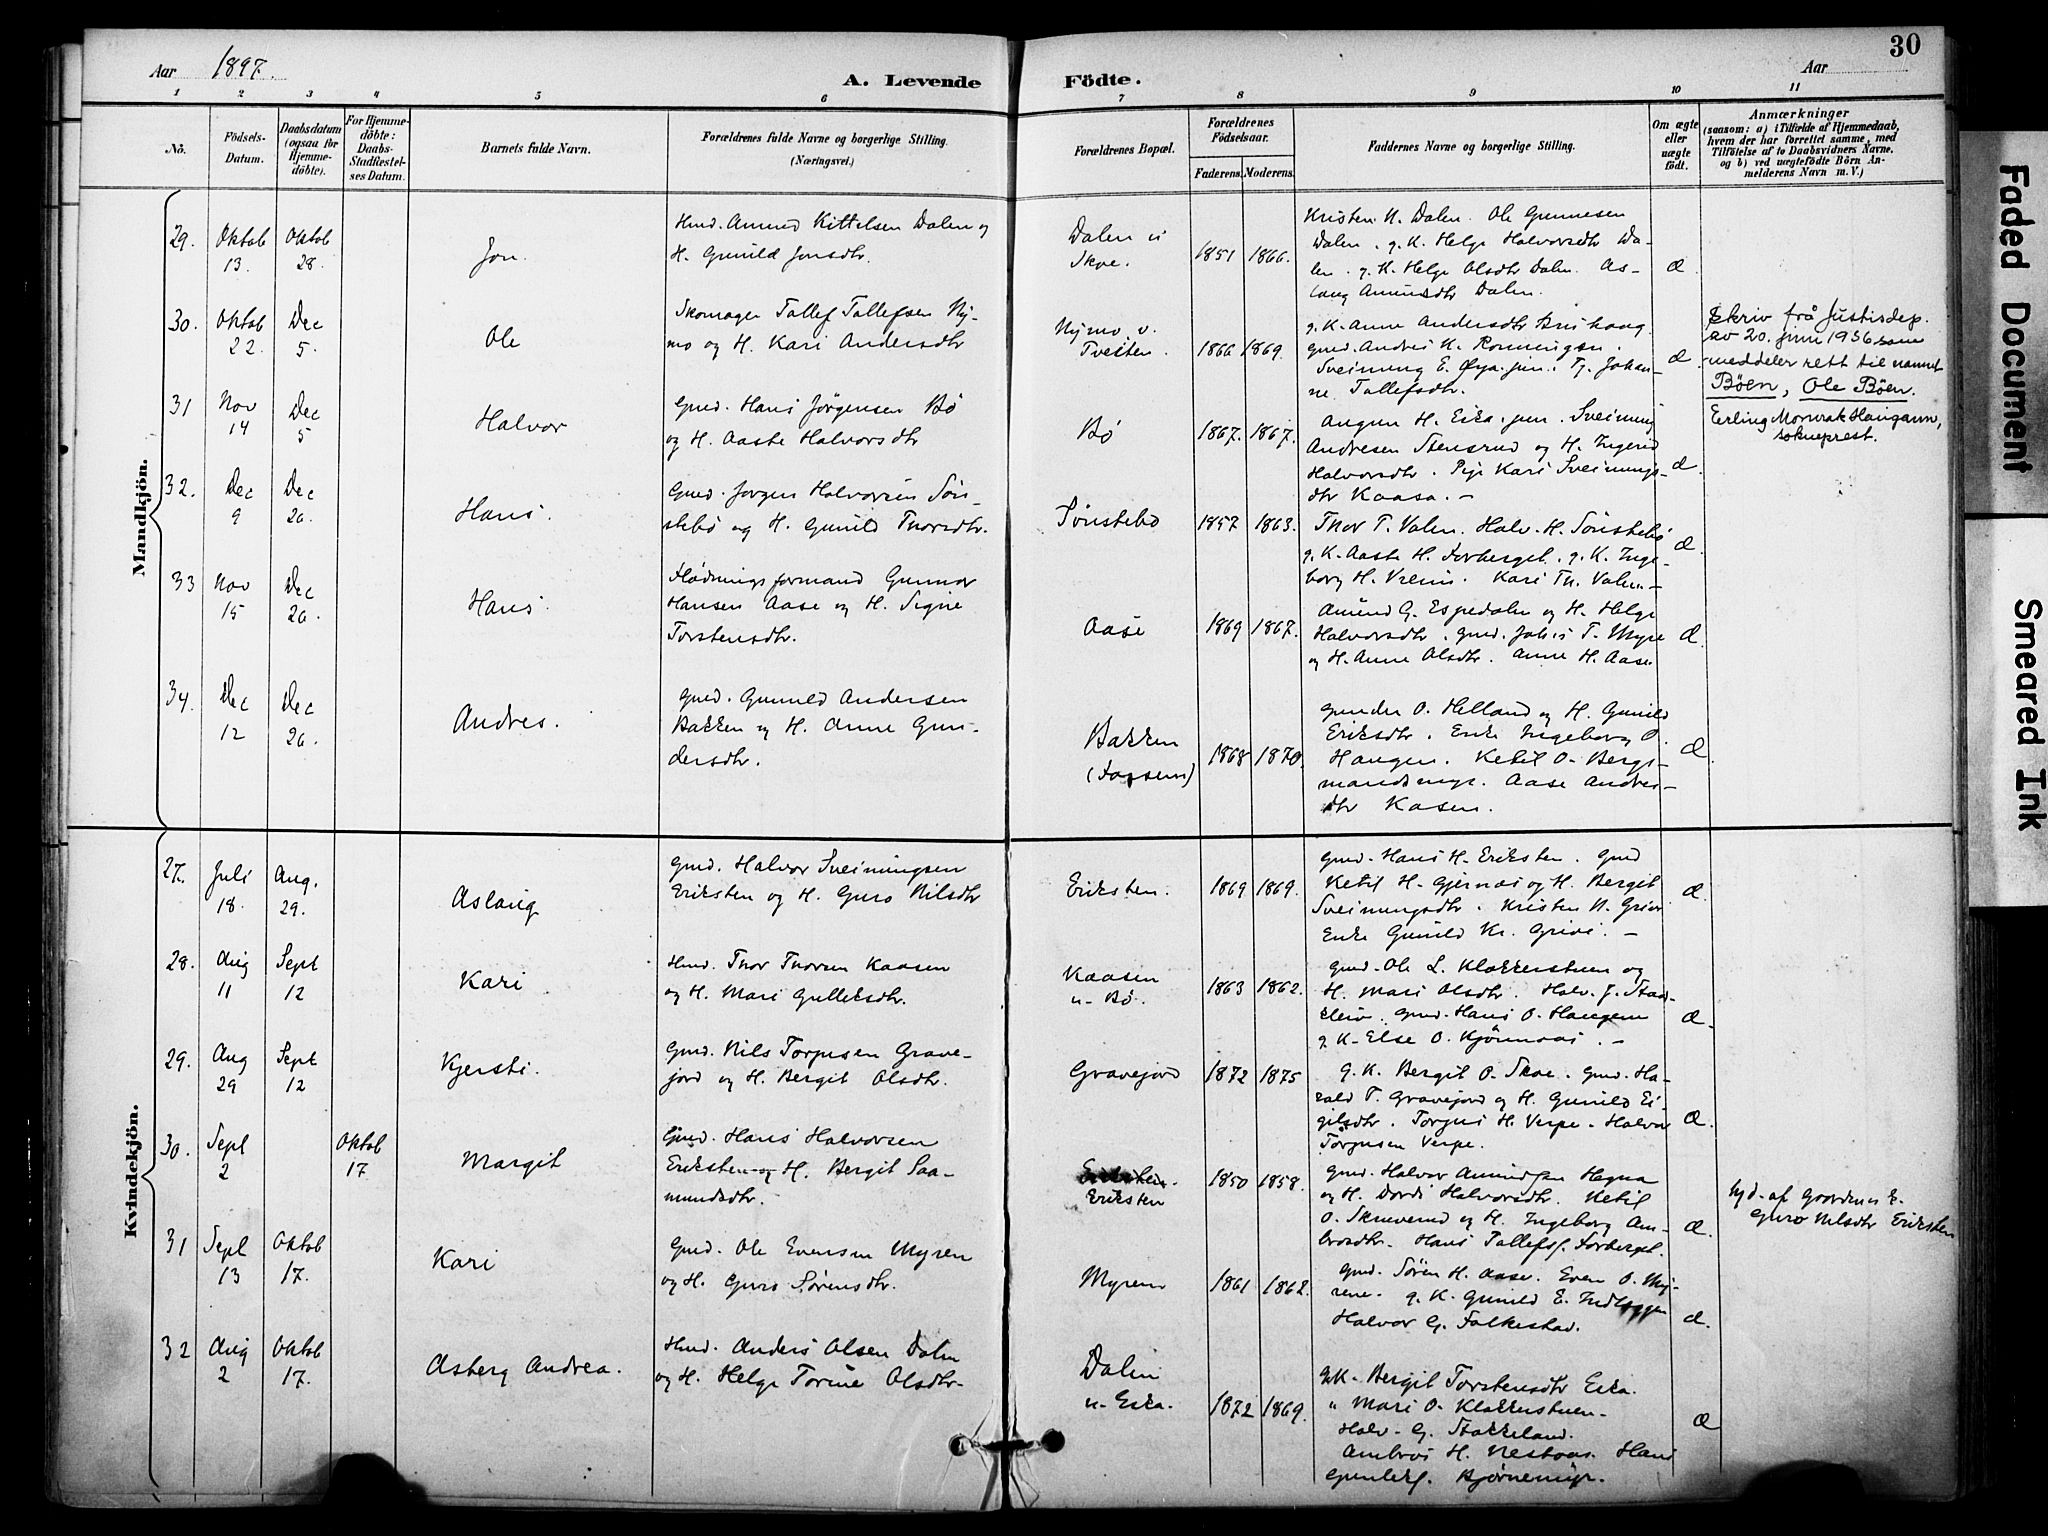 30
Aar 1897.
A. Levende Födte.
Aar
1 2 3 4 5 6 7 8 9 10 11
No.
Födsels-
Datum.
Daabsdatum
(ogsaa for
Hjemme-
döbte).
For Hjemme-
döbte:
Daabs-
Stadfæstel-
ses Datum.
Barnets fulde Navn.
Forældrenes fulde Navne og borgerlige Stilling.
(Næringsvei.)
Forældrenes Bopæl.
Forældrenes
Födselsaar.
Faderens. Moderens.
Faddernes Navne og borgerlige Stilling.
Om ægte
eller
uægte
födt.
Anmærkninger
(saasom: a) i Tilfælde af Hjemmedaab,
hvem der har forrettet samme, med
Tilföielse af to Daabsvidners Navne,
og b) ved uægtefödte Börn An-
melderens Navn m. V.)
Mandkjön.
29. Oktob 13. Oktob 28. Jon.
Hmd. Amund Kittelsen Dalen og
H. Gunild Jonsdtr.
Dalen u
Skoe.
1851 1866.
Kristen K. Dalen. Ole Gunnesen
Dalen. g. K. Helge Halvorsdtr Da-
len. g. K. Helge Olsdtr Dalen. As-
laug Amundsdtr Dalen.
Æ
30. Oktob 22. Dec 5. Ole
Skomager Tallef Tallefsen Ny-
mo og H. Kari Andersdtr
Nymo v.
Tveiten.
1866 1869.
g. K. Anne Andersdtr
Gmd. Andres N. Ronningen.
Sveinung E. Øya. jun. Tj. Johan-
ne Tallefsdtr.
Æ
Skriv frå Justisdep.
av 20. juni 1936 som
meddeler rett til namnet
Bøen, Ole Bøen.
Erling Morvrak Haugann,
sokneprest.
31 Nov 14 Dec 5. Halvor
Gmd. Hans Jørgensen Bø
og H. Aaste Halvorsdtr
Bø
1867. 1867.
Augun H. Eika. jun. Sveinung
Andresen Stensrud og H. Ingerid
Halvorsdtr. Pige Kari Sveinungs-
dtr Kaasa. —
Æ.
32. Dec 9 Dec 26. Hans.
Gmd. Jørgen Halvorsen Søn-
stebø og H. Gunild Thorsdtr.
Sønstebø
1857 1863.
Thor T. Valen. Halv. H. Sønstebø
g. K. Aaste H. Forberget. g. K. Inge-
borg H. Vreim. Kari Th. Valen—
Æ.
33 Nov 15 Dec 26. Hans.
Flødningsformand Gunnar
Hansen Aase og H. Signe
Torstensdtr.
Aase
1869 1867.
Amund G. Espedalen og H. Helge
Halvorsdtr. Gmd. Johs T. Myre
og H. Anne Olsdtr. Anne H. Aase
Æ
34. Dec 12 Dec 26. Andres.
Gmd. Gunuld Andersen
Bakken og H. Anne Gun-
dersdtr.
Bakken
1868 1870.
Gunder O. Helland og H. Gunild
Eriksdtr. Enke Ingeborg O.
Haugen. Ketil O. Bergs-
mandsmyr. Aase Andres-
dtr Kasen.
Æ.
Kvindekjön.
27. Juli 18. Aug. 29. Aslaug
Gmd. Halvor Sveinungsen
Eriksten og H. Guro Nilsdtr
Eriksten.
1869 1869.
Gmd. Hans H. Eriksten. Gmd
Ketil H. Gjernæs og H. Bergit
Sveinungsdtr. Kristen N. Grivi
Enke Gunild Kr. Grivi. —
Æ.
28. Aug 11 Sept 12 Kari
Hmd. Thor Thorsen Kaasen
og H. Mari Gulleksdtr.
Kaasen
u. Bø.
1863 1862.
Gmd. Ole L. Klokkerstuen og
H. Mari Olsdtr. Halv. J. Stads-
kleiv. Gmd. Hans O. Haugen
g. K. Else O. Kjønnaas. —
Æ.
29. Aug 29 Sept 12 Kjersti.
Gmd. Nils Torjusen Grave-
jord og H. Bergit Olsdtr.
Gravejord
1872 1875
g. K. Bergit O. Skoe. Gmd. Ha-
rald T. Gravejord og H. Gunild Ei-
gilsdtr. Torjus H. Verpe. Halvor
Torjusen Verpe.
Æ.
30. Sept 2 Oktob 17. Margit
Gmd. Hans Halvorsen
Eriksten og H. Bergit Saa-
mundsdtr.
Eriksten
1850 1858.
Gmd. Halvor Amundsen Hegna
og H. Dordi Halvorsdtr. Ketil
O. Skreverud og H. Ingeborg Am-
brosdtr. Hans Tallefs. Forberget.
Æ.
Hjd. af Gaardmes E.
Guro Nilsdtr Eriksten
31 Sept 13 Oktob 17. Kari
Gmd. Ole Evensen Myren
og H. Guro Sørensdtr.
Myren
1861 1862.
Gmd. Søren H. Aase. Even O. My-
rene. g. K. Gunild E. Indlæggen
Halvor G. Folkestad.
Æ.
32 Aug 2 Oktob 17. Asberg Andrea.
Hmd. Anders Olsen Dalen
og H. Helge Torine Olsdtr.
Dalen
u. Eika.
1872 1869.
g. K. Bergit Torstensdtr Eika.
" Mari O. Klokkerstuen.
Halv. G. Stokkeland.
Ambros H. Nestaas. Hans
Gunleks. Bjørnemyr.
Æ
Faded Document
Smeared Ink